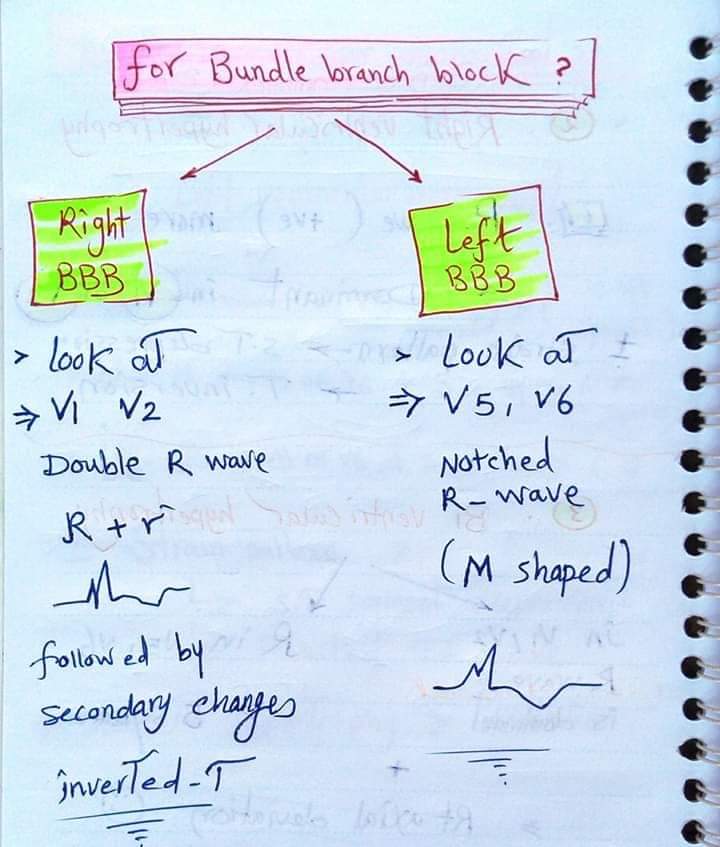 for Bundle branch block ?
Right
BBB
> look at
⇒ V1 V2
Double R wave
R + r
followed by
secondary changes
inverted-T
Left
BBB
> Look at
⇒ V5, V6
Notched
R-wave
(M shaped)